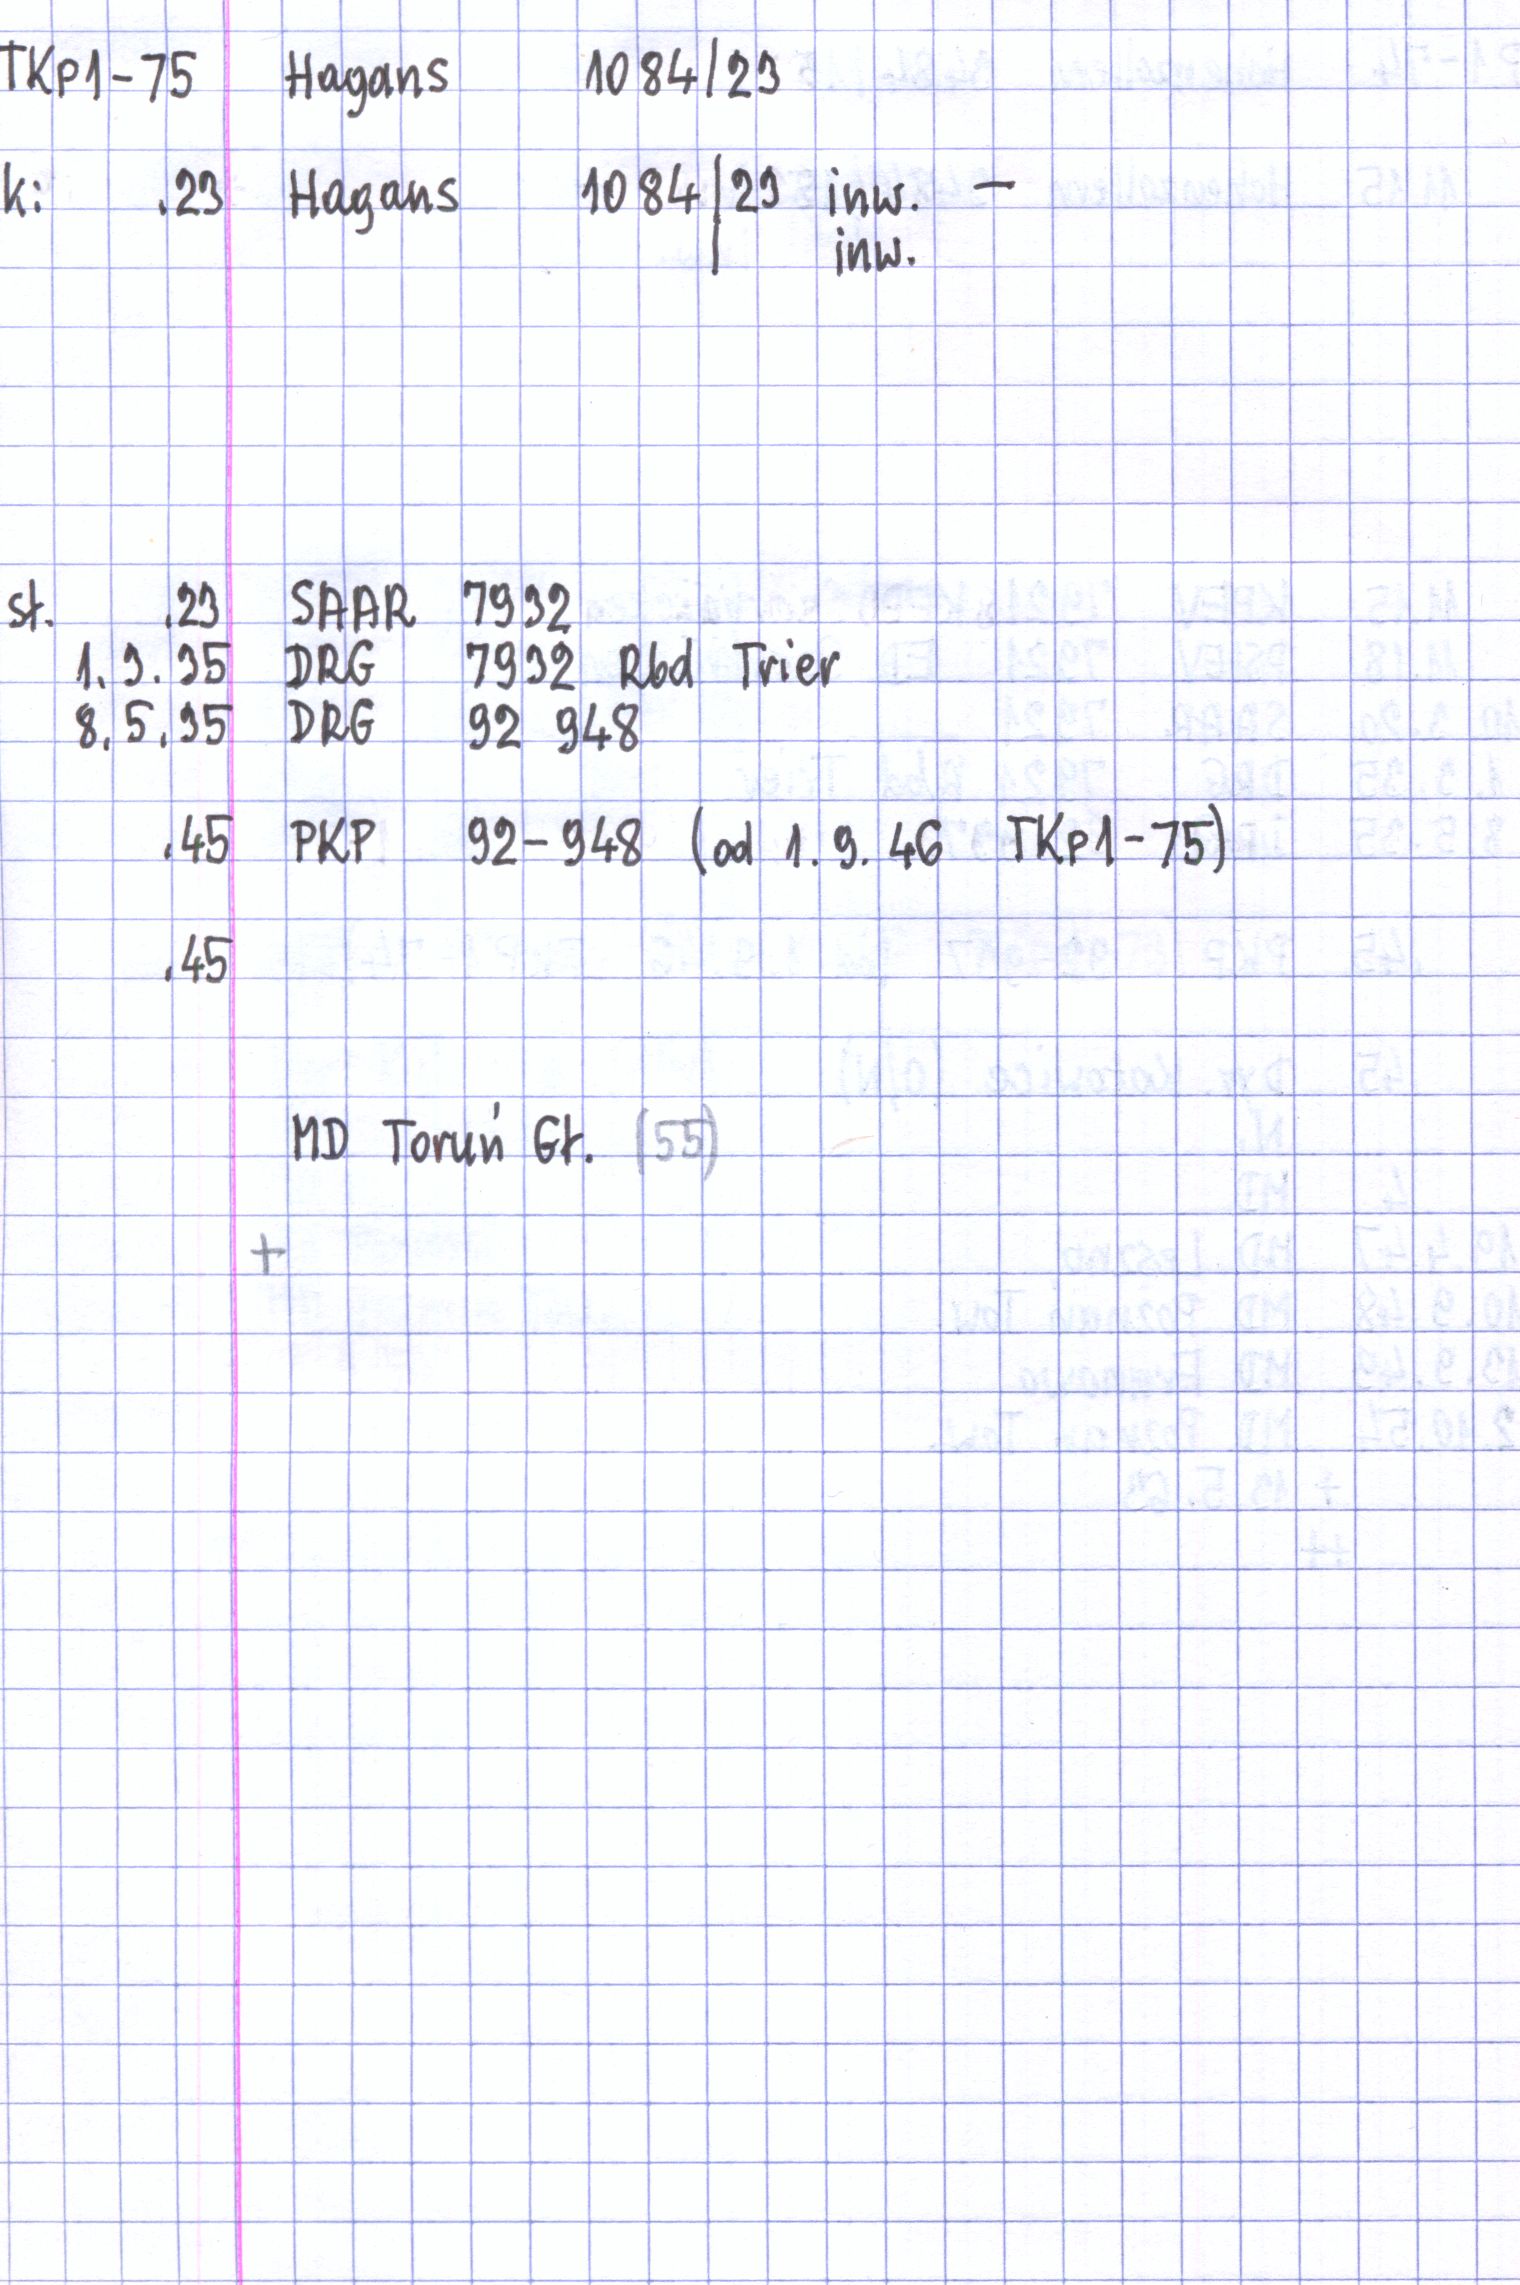 TKp1-75 Hagans 1084/23
k: .23 Hagans 1084/23 inw. -
/ inw.
st. .23 SAAR 7932
1.3.35 DRG 7932 Rbd Trier
8.5.35 DRG 92 948
.45 PKP 92-948 (od 1.9.46 TKp1-75)
.45
MD Toruń Gł. (55)
+